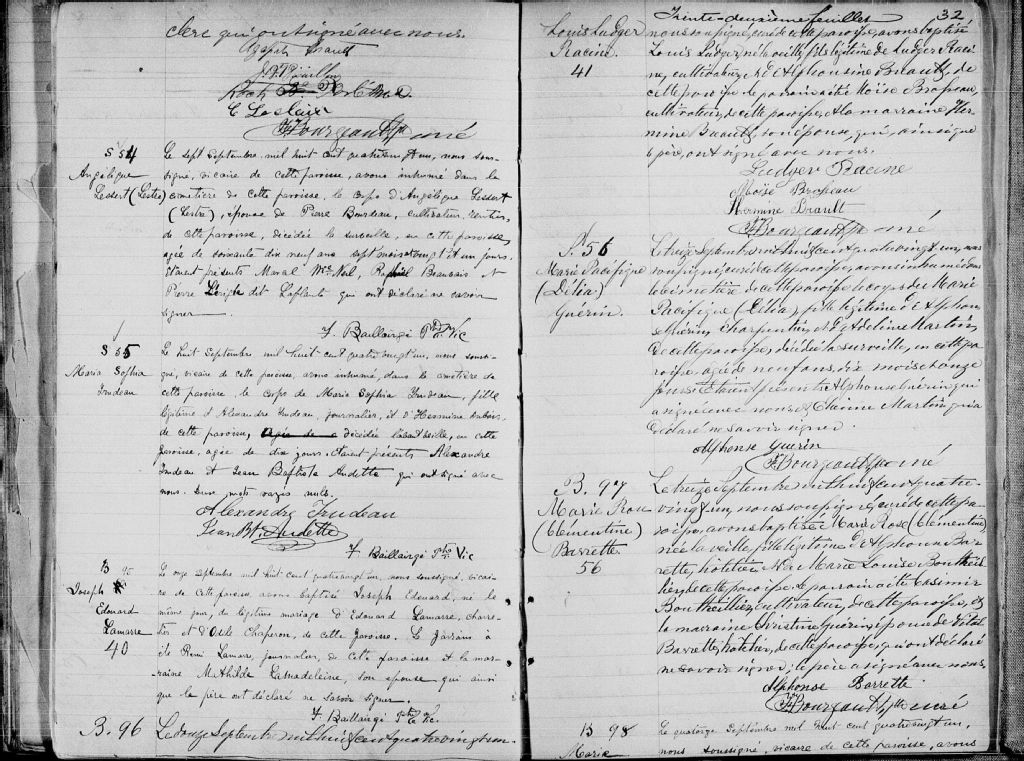 clerc qui ont signé avec nous.
E Leclair
F. Bourgeault ptre curé
S 54
Angélique
Lessert (Lestre)
Le sept Septembre mil huit cent quatrevingt un, nous sous-
signé, vicaire de cette paroisse, avons inhumé dans le
cimetière de cette paroisse, le corps d'Angélique Lessert
(Lestre), épouse de Pierre Bourdeau, cultivateur, rentier,
de cette paroisse, décédée la surveille, en cette paroisse,
agée de soixante dix neuf ans sept mois vingt et un jours.
Etaient présents Maral McNeil, Raphiel Beauvais &
Pierre dit Laplante qui ont déclaré ne savoir
signer.
F. Baillairgé Ptre Vic
S 55
Maria Sophia
Trudeau
Le huit Septembre mil huit cent quatrevingt un, nous soussi-
gné, vicaire de cette paroisse, avons inhumé, dans le cimetière de
cette paroisse, le corps de Maria Sophia Trudeau, fille
légitime d'Alexandre Trudeau, journalier, et d'Hermine Aubin,
de cette paroisse, décédée l'avant veille, en cette
paroisse, agée de dix jours. Etaient présents Alexandre
Trudeau et Jean Baptiste Audette qui ont signé avec
nous. Deux mots rayés nuls.
Alexandre Trudeau
Jean Bt. Audette
F Baillairgé Ptre Vic
B 95
Joseph
Edouard
Lamarre
40
Le onze Septembre mil huit cent quatrevingt un, nous soussigné, vicai-
re de cette paroisse, avons baptisé Joseph Edouard, né le
même jour, du légitime mariage d'Edouard Lamarre, charre-
tier et d'Odile Chaperon, de cette paroisse. Le parrain a
été Rémi Lamarre, journalier, de cette paroisse et la mar-
raine Mathilde Lamadeleine, son épouse, qui ainsi
que le père ont déclaré ne savoir signer.
F. Baillairgé Ptre Vic.
B. 96
Le douze Septembre mil huit cent quatre vingt un.
Trente-deuxième feuillet
32
Louis Ludger
Racine
41
nous soussigné, curé de cette paroisse, avons baptisé
Louis Ludger, né la veille, fils légitime de Ludger Raci-
ne, cultivateur, & d'Alphonsine Breault, de
cette paroisse. Le parrain a été Moïse Brosseau,
cultivateur, de cette paroisse, & la marraine Her-
mine Breault, son épouse, qui, ainsi que
le père, ont signé avec nous.
Ludger Racine
Moïse Brosseau
Hermine Brault
F. Bourgeault ptre curé
S. 56
Marie Pacifique
(Délia)
Guérin
Le treize Septembre mil huit cent quatre vingt un, nous
soussigné, curé de cette paroisse, avons inhumé dans
le cimetière de cette paroisse le corps de Marie
Pacifique (Délia), fille légitime d'Alphon-
se Guérin, charpentier, et d'Adeline Martin,
de cette paroisse, décédée la surveille, en cette pa-
roisse, agée de neuf ans, dix mois & onze
jours. Etaient présents Alphonse Guérin qui
a signé avec nous & Etienne Martin qui a
déclaré ne savoir signer.
Alphonse Guérin
F. Bourgeault ptre curé
B. 97
Marie Rose
(Clémentine)
Barrette
56
Le treize Septembre mil huit cent quatre-
vingt un, nous soussigné, curé de cette pa-
roisse, avons baptisé Marie Rose (Clémentine)
née la veille, fille légitime d'Alphonse Bar-
rette, hôtelier, & de Marie Louise Bouthil-
lier, de cette paroisse. Le parrain a été Casimir
Bouthillier, cultivateur, de cette paroisse, et
la marraine Christine Guérin, épouse de Vital
Barrette, hôtelier, de cette paroisse, qui ont déclaré
ne savoir signer; le père a signé avec nous.
Alphonse Barrette
F. Bourgeault ptre curé
B 98
Marie
Le quatorze Septembre mil huit cent quatrevingt un,
nous soussigné, vicaire de cette paroisse, avons